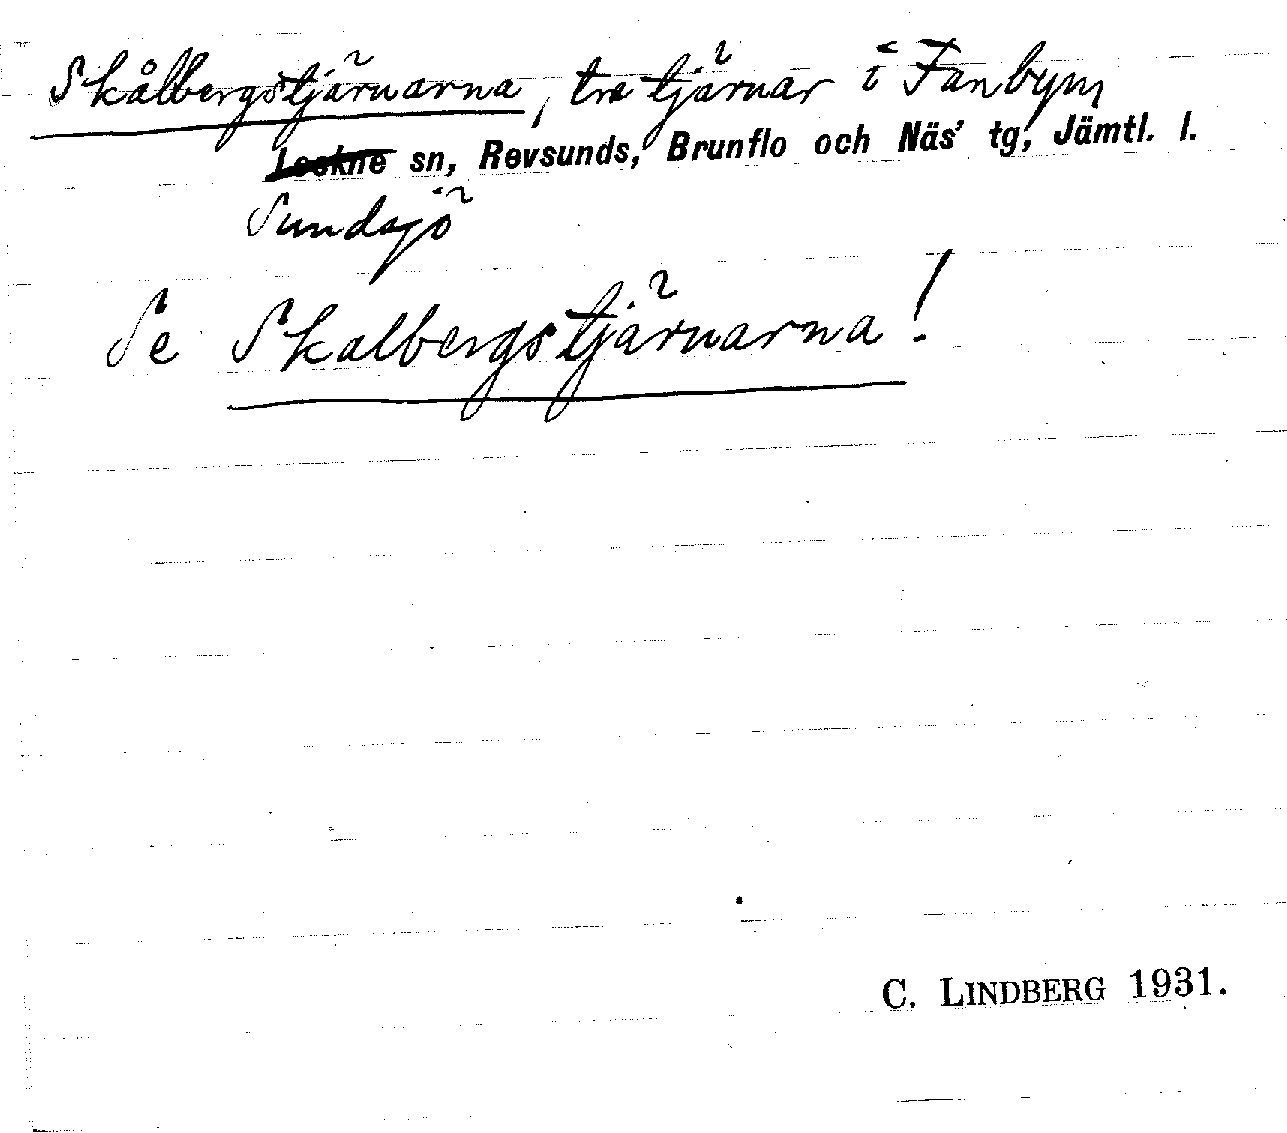 Skålbergstjärnarna, tre tjärnar i Fanbyn
Lockne sn, Revsunds, Brunflo och Näs' tg, Jämtl. l.
Sundsjö
Se Skalbergstjärnarna!
C. LINDBERG 1931.